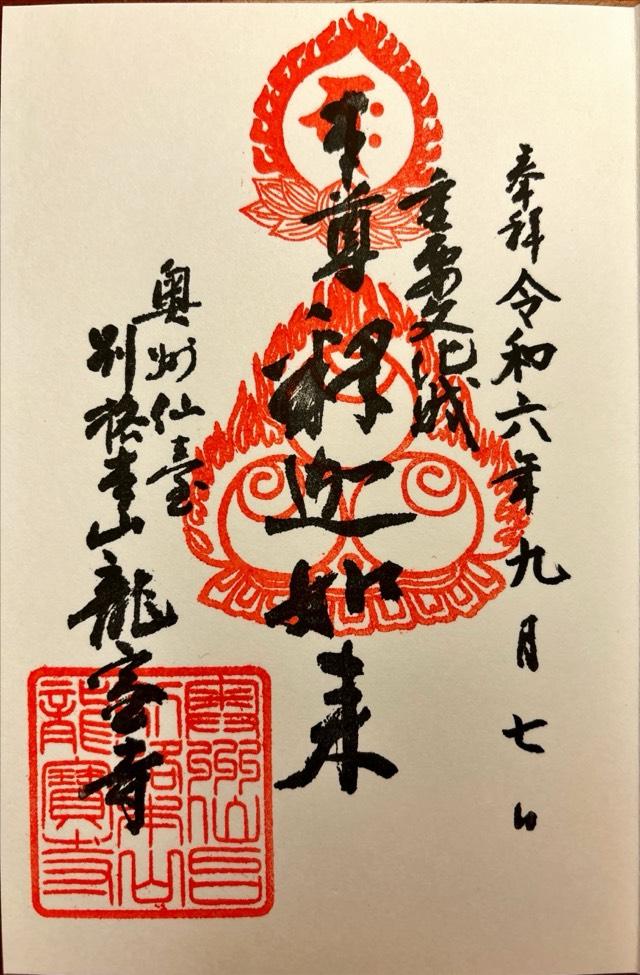 奉拝 令和六年九月七日
重要文化財
本尊 釋迦如来
奥州仙臺
別格本山 龍宝寺
奥州仙台
別格本山
龍寶寺